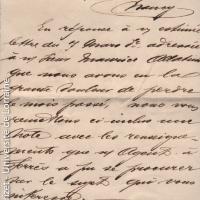 Nancy
En réponse à v/ estimée
lettre du 7 Mars dr. adressée
à n/ Sieur Maurice
que nous avons eu la
grande douleur de perdre
le mois passé, nous vous
remettons ci-inclus une
note avec les renseigne-
ments que n/ Agent à
a pu se procurer
sur le sujet qui vous
intéresse
Université de Lorraine